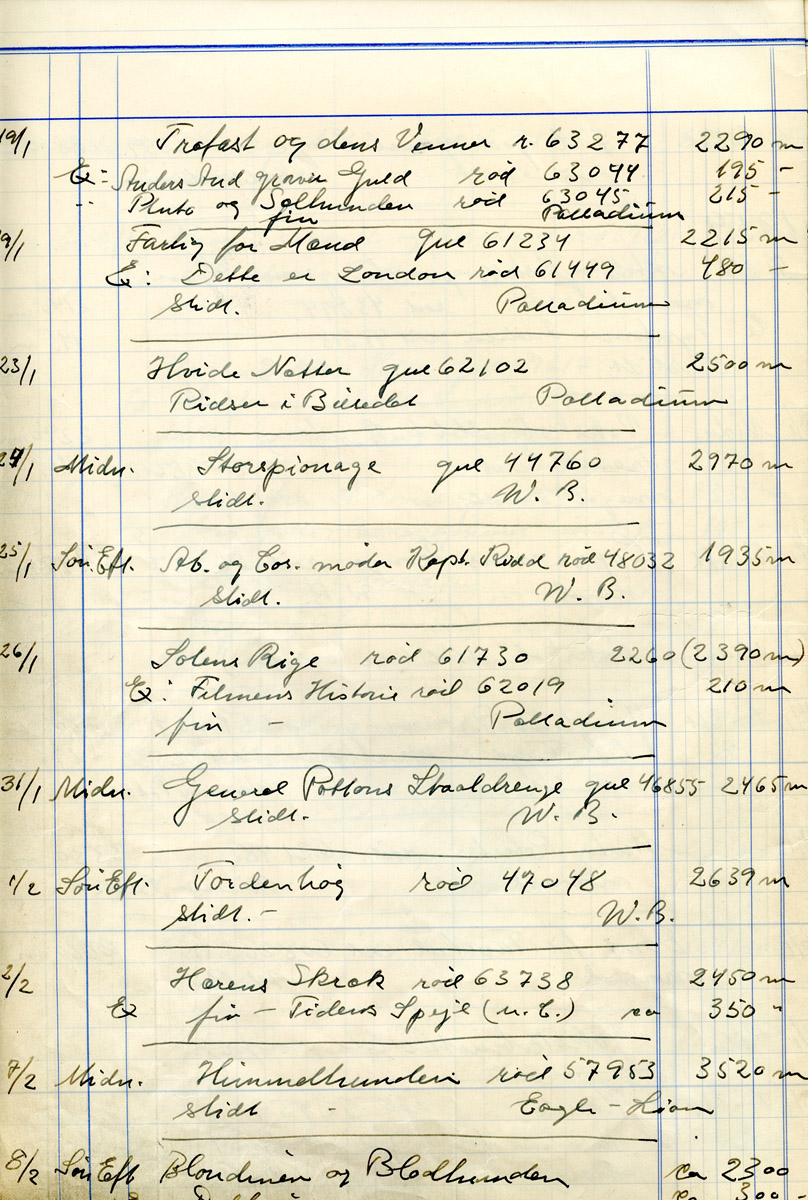 19/1 Trofast og dens Venner r. 63277 2290 m
Ex: Anders And graver Guld rød 63044 195 -
" Pluto og Sælhunden rød 63045 215 -
fin Palladium
19/1 Farlig for Mænd gul 61234 2215 m
Ex: Dette er London rød 61449 480 -
slidt. Palladium
23/1 Hvide Nætter gul 62102 2500 m
Ridser i Billedet Palladium
24/1 Midn. Storspionage gul 44760 2970 m
slidt. W. B.
25/1 Søn. Eft. Ab. og Cos. møder Kapt. Kidd rød 48032 1935 m
slidt. W. B.
26/1 Solens Rige rød 61730 2260 (2390 m)
Ex: Filmens Historie rød 62019 210 m
fin - Palladium
31/1 Midn. General Pattons Staaldrenge gul 46855 2465 m
slidt. W. B.
1/2 Søn Eft. Tordenhøg rød 47048 2639 m
slidt. - W. B.
2/2 Hærens Skræk rød 63738 2450 m
Ex fin - Tidens Spejl (u. C.) ca 350 "
7/2 Midn. Himmelhunden rød 57953 3520 m
slidt - Eagle - Lion
8/2 Søn Eft Blondinen og Blodhunden ca 2300
ca 300